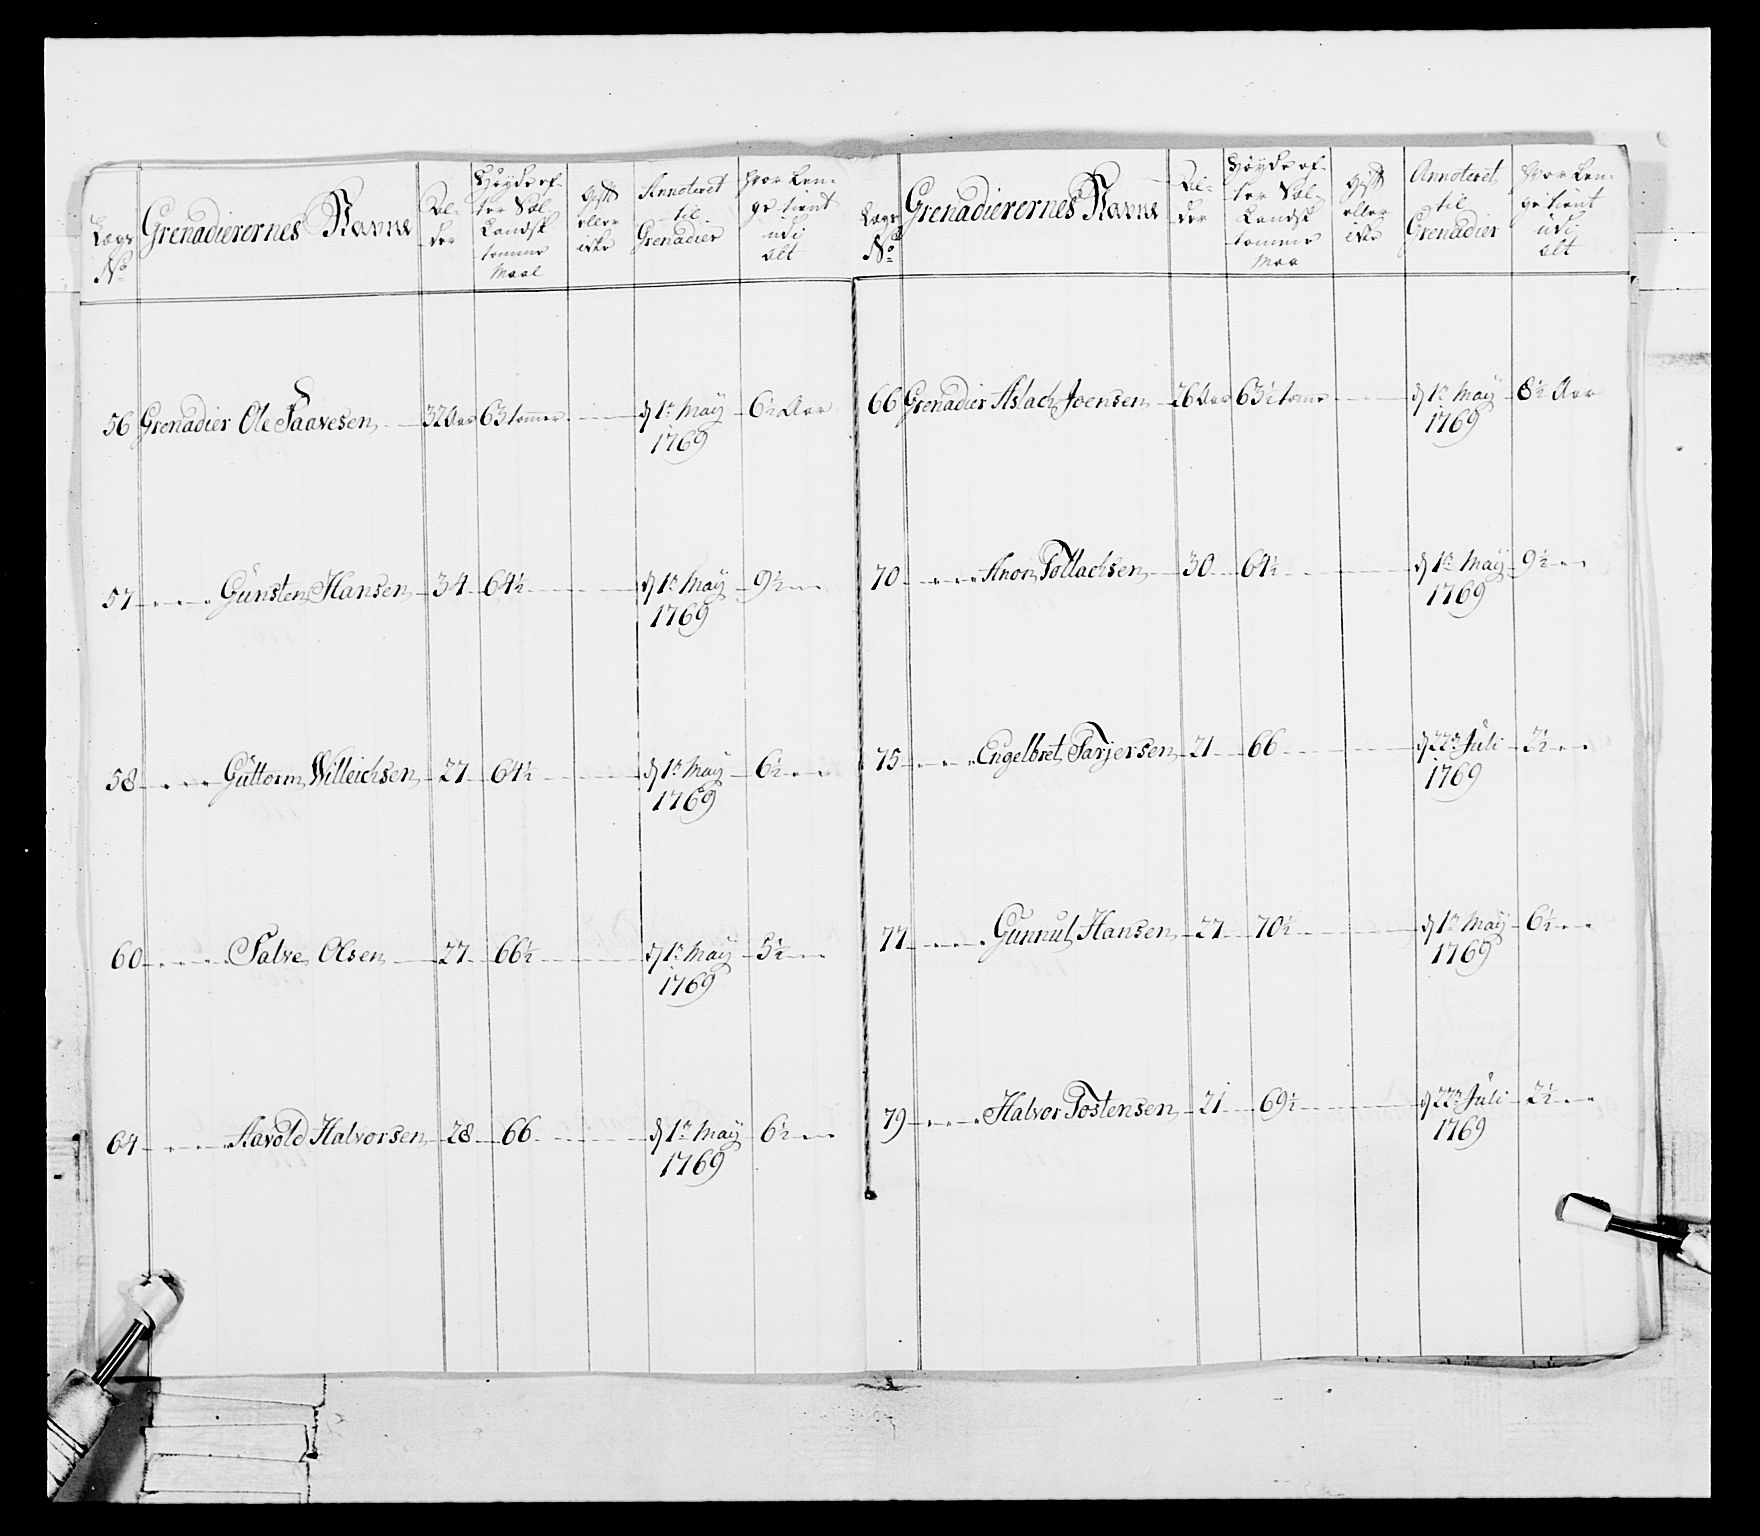 Lægs No
Grenadierernes Navne
Al-
der
Høyde ef-
ter Siel
Landsk
tomme
Maal
Gift
eller
ikke
Annoteret
til
Grenadier
Hvor Len-
ge tient
udi
alt
56 Grenadier Ole Taavesen 32 Aar 63 tommer d 1n May 1769 6½ Aar
57 Gunsten Hansen 34 64½ d 1n May 1769 9½
58 Guttorm Willeichsen 27 64½ d 1n May 1769 6½
60 Salve Olsen 27 66½ d 1n May 1769 5½
64 Aavold Halvorsen 28 66 d 1n May 1769 6½
Lægs No
Grenadierernes Navne
Al-
der
Høyde ef-
ter Siel
Landsk
tomme
Maa
Gift
eller
ikke
Annoteret
til
Grenadier
Hvor Len-
ge tient
udi
alt
66 Grenadier Aslach Joensen 26 Aar 63½ tome d 1n May 1769 8½ Aar
70 Anon Tollachsen 30 64½ d 1n May 1769 9½
75 Engelbret Tarjersen 21 66 d 22n Juli 1769 2½
77 Gunnul Hansen 27 70½ d 1n May 1769 6½
79 Halvor Tostensen 21 69½ d 22n Juli 1769 2½